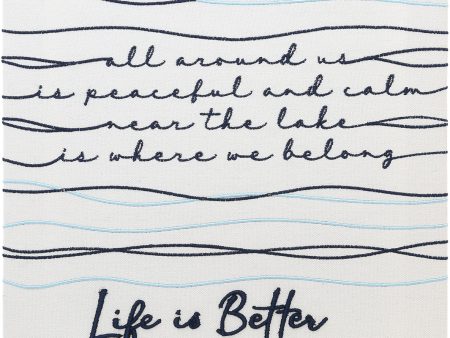 all around us
is peaceful and calm
near the lake
is where we belong
Life is Better